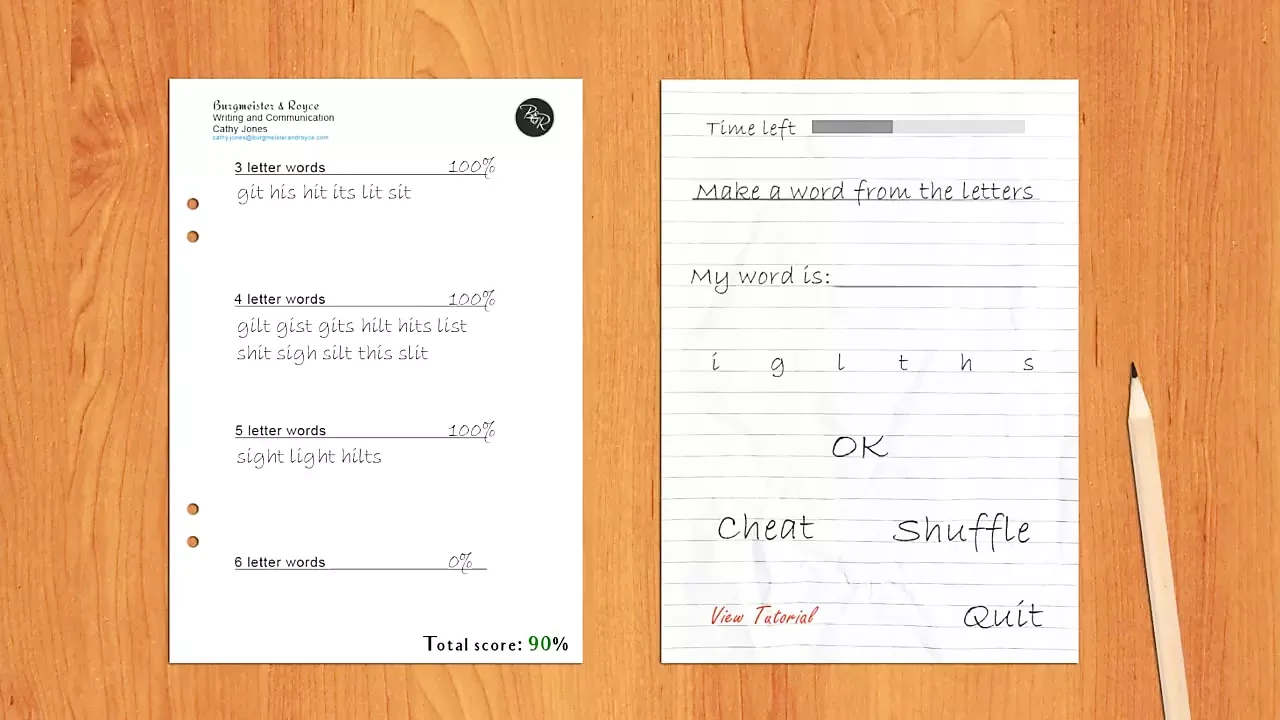 Burgmeister & Royce
Writing and Communication
Cathy Jones
cathy.jones@burgmeisterandroyce.com
B&R
3 letter words 100%
git his hit its lit sit
4 letter words 100%
gilt gist gits hilt hits list
shit sigh silt this slit
5 letter words 100%
sight light hilts
6 letter words 0%
Total score: 90%
Time left
Make a word from the letters
My word is:
i g l t h s
OK
Cheat Shuffle
View Tutorial Quit